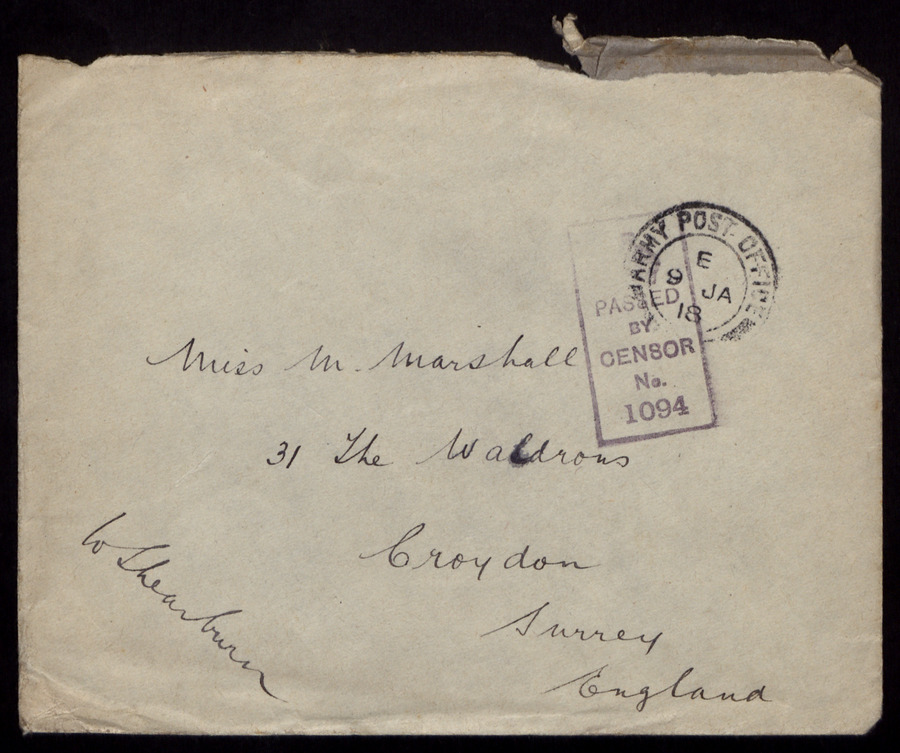 ARMY POST OFFICE
E
9 JA
18
PASSED
BY
CENSOR
No.
1094
Miss M. Marshall
31 The Waldrons
Croydon
Surrey
England
W Shearburn